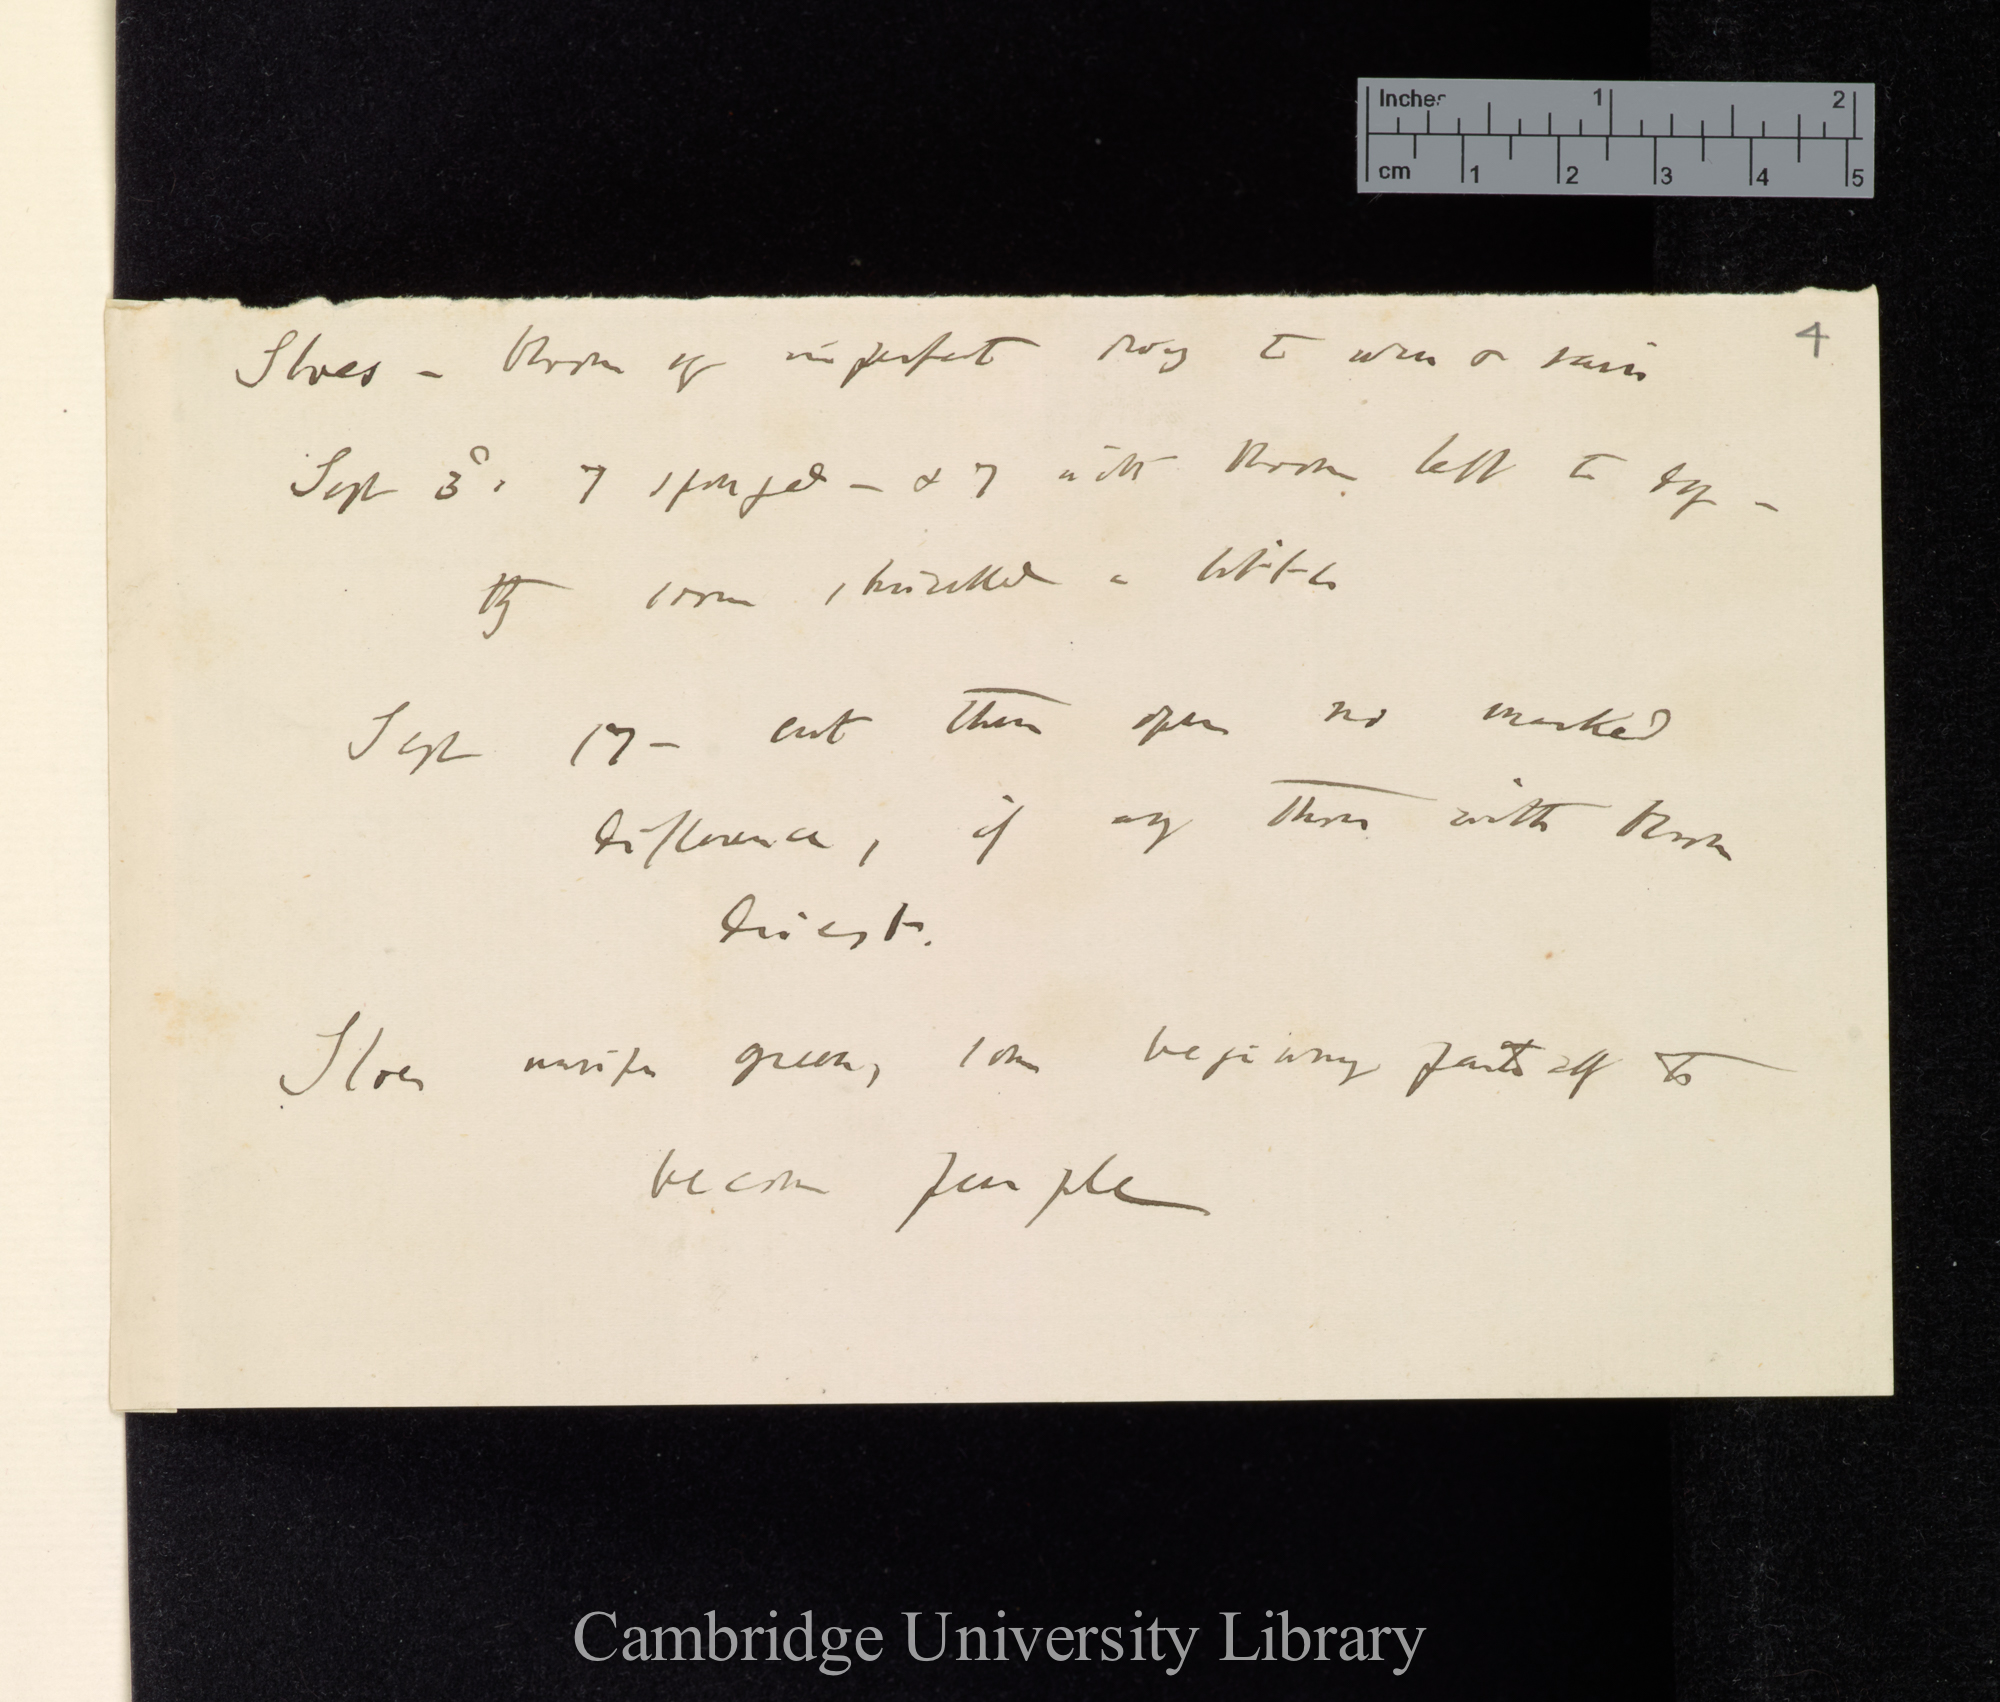 Inches 1 2
cm 1 2 3 4 5
4
Sloes – bloom of imperfect owing to wear or rain
Sept 3d. 7 sponged – & 7 with bloom left to dry –
They soon shrivelled a little
Sept 17 – cut them open no marked
difference, if any those with bloom
driest.
Sloes unripe green, some beginning partially to
become purple
Cambridge University Library